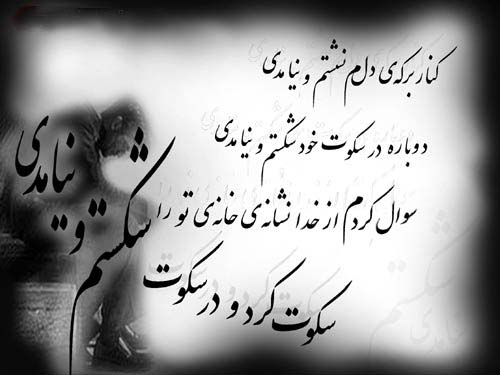 کنار برکه‌ی دلم نشستم و نیامدی
دوباره در سکوت خود شکستم و نیامدی
سوال کردم از خدا نشانه‌ی خانه‌ی تو را
سکوت کرد و در سکوت
شکستم و نیامدی